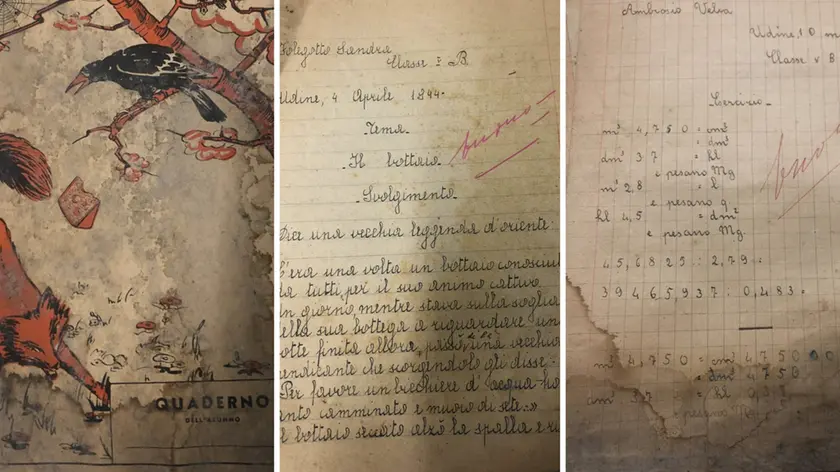 QUADERNO
DELL'ALUNNO
Sandra
Classe I a B.
Udine, 4 Aprile 1944.
Tema
Il bottaio
buono
Svolgimento
Dice una vecchia leggenda d'oriente:
C'era una volta un bottaio conosciu
da tutti, per il suo animo cattivo.
Un giorno, mentre stava sulla soglia
della sua bottega a riguardare una
botte finita allora, passò una vecchia
mendicante che scorgendolo gli disse:
Per favore un bicchiere d'acqua ho
tanto camminato e muoio di sete.»
Il bottaio seccato alzò la spalla e
Ambrosio Velia
Udine, 10 m
Classe V B
Esercizio
m³ 4,750 = cm³
= dm³
dm³ 37 = hl
e pesano Mg
m³ 2,8 = l
e pesano q
hl 4,5 = dm³
e pesano Mg.
45,6825 : 2,79 =
39465,937 : 0,483 =
m³ 4,750 = cm³ 475000
= dm³ 4750
dm³ 37 = hl 0,37
e pesano Mg